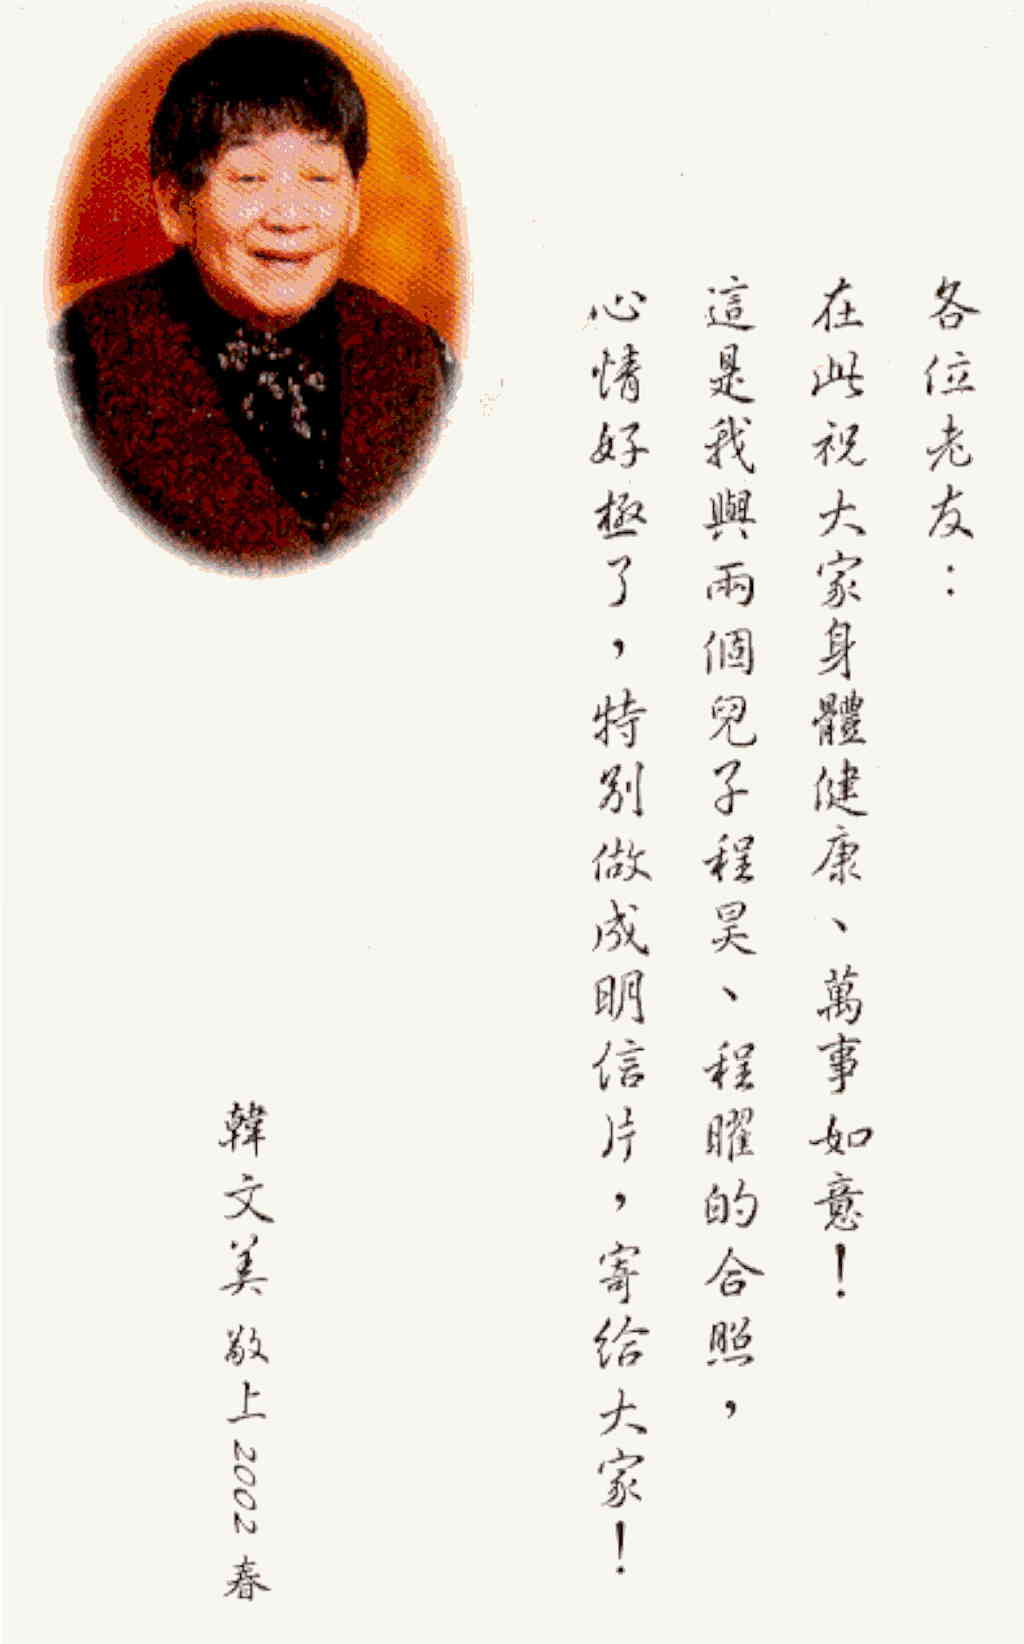 各位老友：
在此祝大家身體健康、萬事如意！
這是我與兩個兒子程昊、程曜的合照，
心情好極了，特別做成明信片，寄給大家！
韓文美 敬上 2002 春